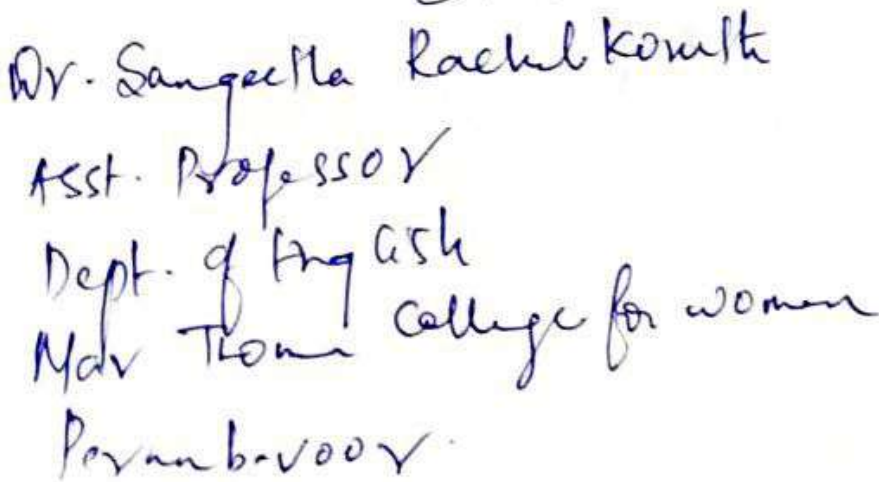 Dr. Sangeetha Rachel Koruth
Asst. Professor
Dept. of English
Mar Thoma College for women
Perumbavoor.